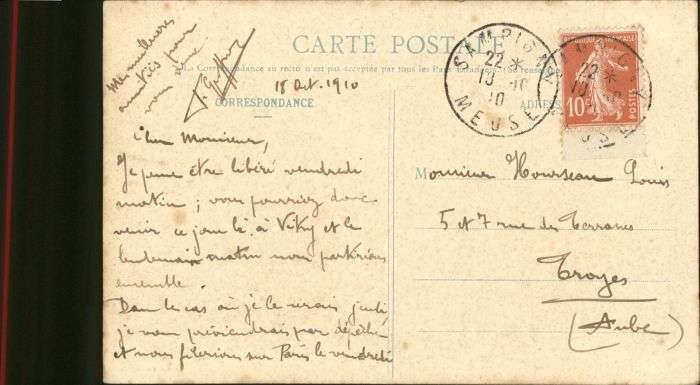 CARTE POSTALE
La Correspondance au recto n'est pas acceptée par tous les Pays Etrangers (Se renseigner
CORRESPONDANCE
ADRES
Mes meilleures
amitiés pour
vous deux
18 Oct. 1910
SAMPIGNY
22 *
10 10
10
MEUSE
22 *
10
POSTES
Cher Monsieur,
Je pense être libéré vendredi
matin ; vous pourriez donc
venir ce jour là à Vitry et le
lendemain matin nous partirions
ensemble.
Dans le cas où je le serais jeudi
je vous préviendrais par dépêche
et nous filerions sur Paris le vendredi
Monsieur Hourseau Louis
5 et 7 rue des Terrasses
Troyes
(Aube)